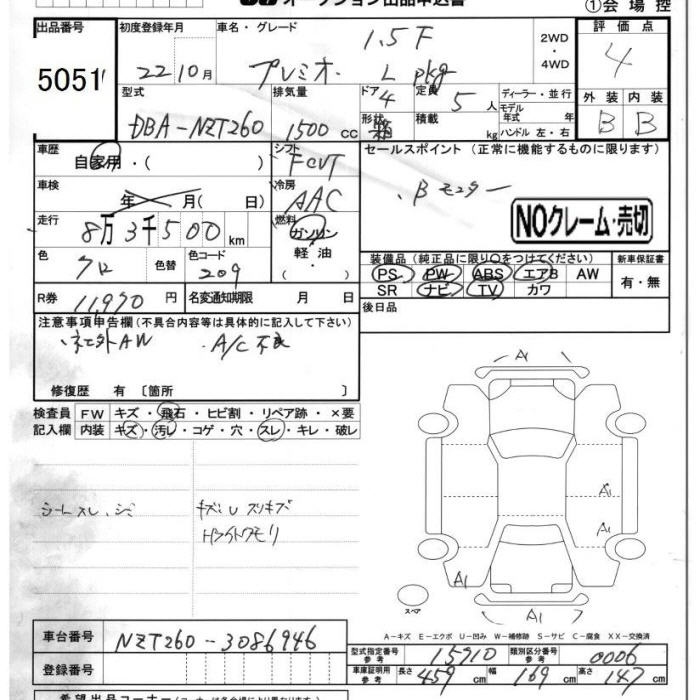 オークション出品申込書 ①会場控
出品番号 初度登録年月 車名・グレード 2WD・4WD 評価点
5051 22 10月 プレミオ 1.5F L pkg 4
型式 排気量 ドア 定員 ディーラー・並行 外装 内装
DBA-NZT260 1500cc 4 5人 モデル年式 年 B B
形状 積載 kg ハンドル 左・右
車歴 シフト セールスポイント (正常に機能するものに限ります)
自家用・( ) FCVT
車検 冷房 Bモニター
年 月( 日) AAC NOクレーム・売切
走行 燃料
8万3千500km ガソリン
軽油・( )
色 色替 色コード 装備品(純正品に限り○をつけてください) 新車保証書
クロ 209 PS PW ABS エアB AW 有・無
SR ナビ TV カワ
R券 11,970円 名変通知期限 月 日 後日品
注意事項申告欄(不具合内容等は具体的に記入して下さい)
社外AW A/C不良
修復歴 有〔箇所 〕
検査員 FW キズ・飛石・ヒビ割・リペア跡・×要
記入欄 内装 キズ・汚レ・コゲ・穴・スレ・キレ・破レ
シートスレ、シミ キズ U スリキズ
A1
A1
A1
A1 A1
スペア
A-キズ E-エクボ U-凹み W-補修跡 S-サビ C-腐食 XX-交換済
車台番号 NZT260-3086946 型式指定番号 参考 15910 類別区分番号 参考 0006
登録番号 車庫証明用 参考 長さ 459cm 幅 169cm 高さ 147cm
希望出品コーナー